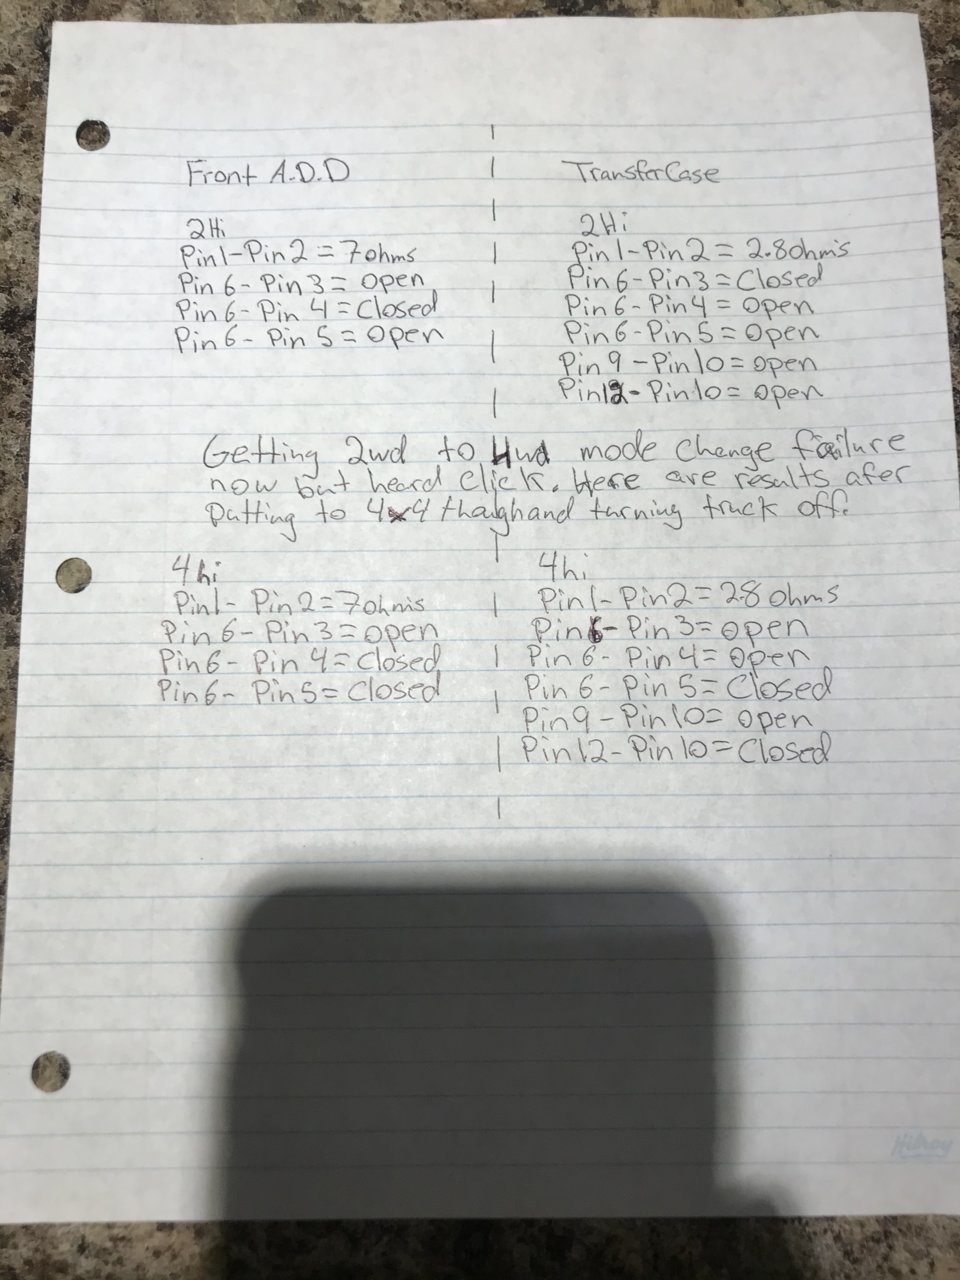 Front A.D.D
2Hi
Pin1-Pin2 = 7ohms
Pin 6- Pin 3 = open
Pin 6- Pin 4 = Closed
Pin 6- Pin 5 = Open
TransferCase
2Hi
Pin1-Pin2 = 2.8ohms
Pin6-Pin3=Closed
Pin6-Pin4= Open
Pin6-Pin5= Open
Pin9-Pin10= open
Pin12-Pin10= open
Getting 2wd to 4wd mode change failure
now but heard click. Here are results afer
Putting to 4x4 thoughand turning truck off.
4hi
Pin1- Pin2=7ohms
Pin6-Pin3=open
Pin6- Pin4=Closed
Pin6- Pin5= Closed
4hi
Pin1-Pin2=2.8ohms
Pin6-Pin3=open
Pin6- Pin4=Open
Pin6- Pin5=Closed
Pin9-Pin10= open
Pin12-Pin10=Closed
Hilroy